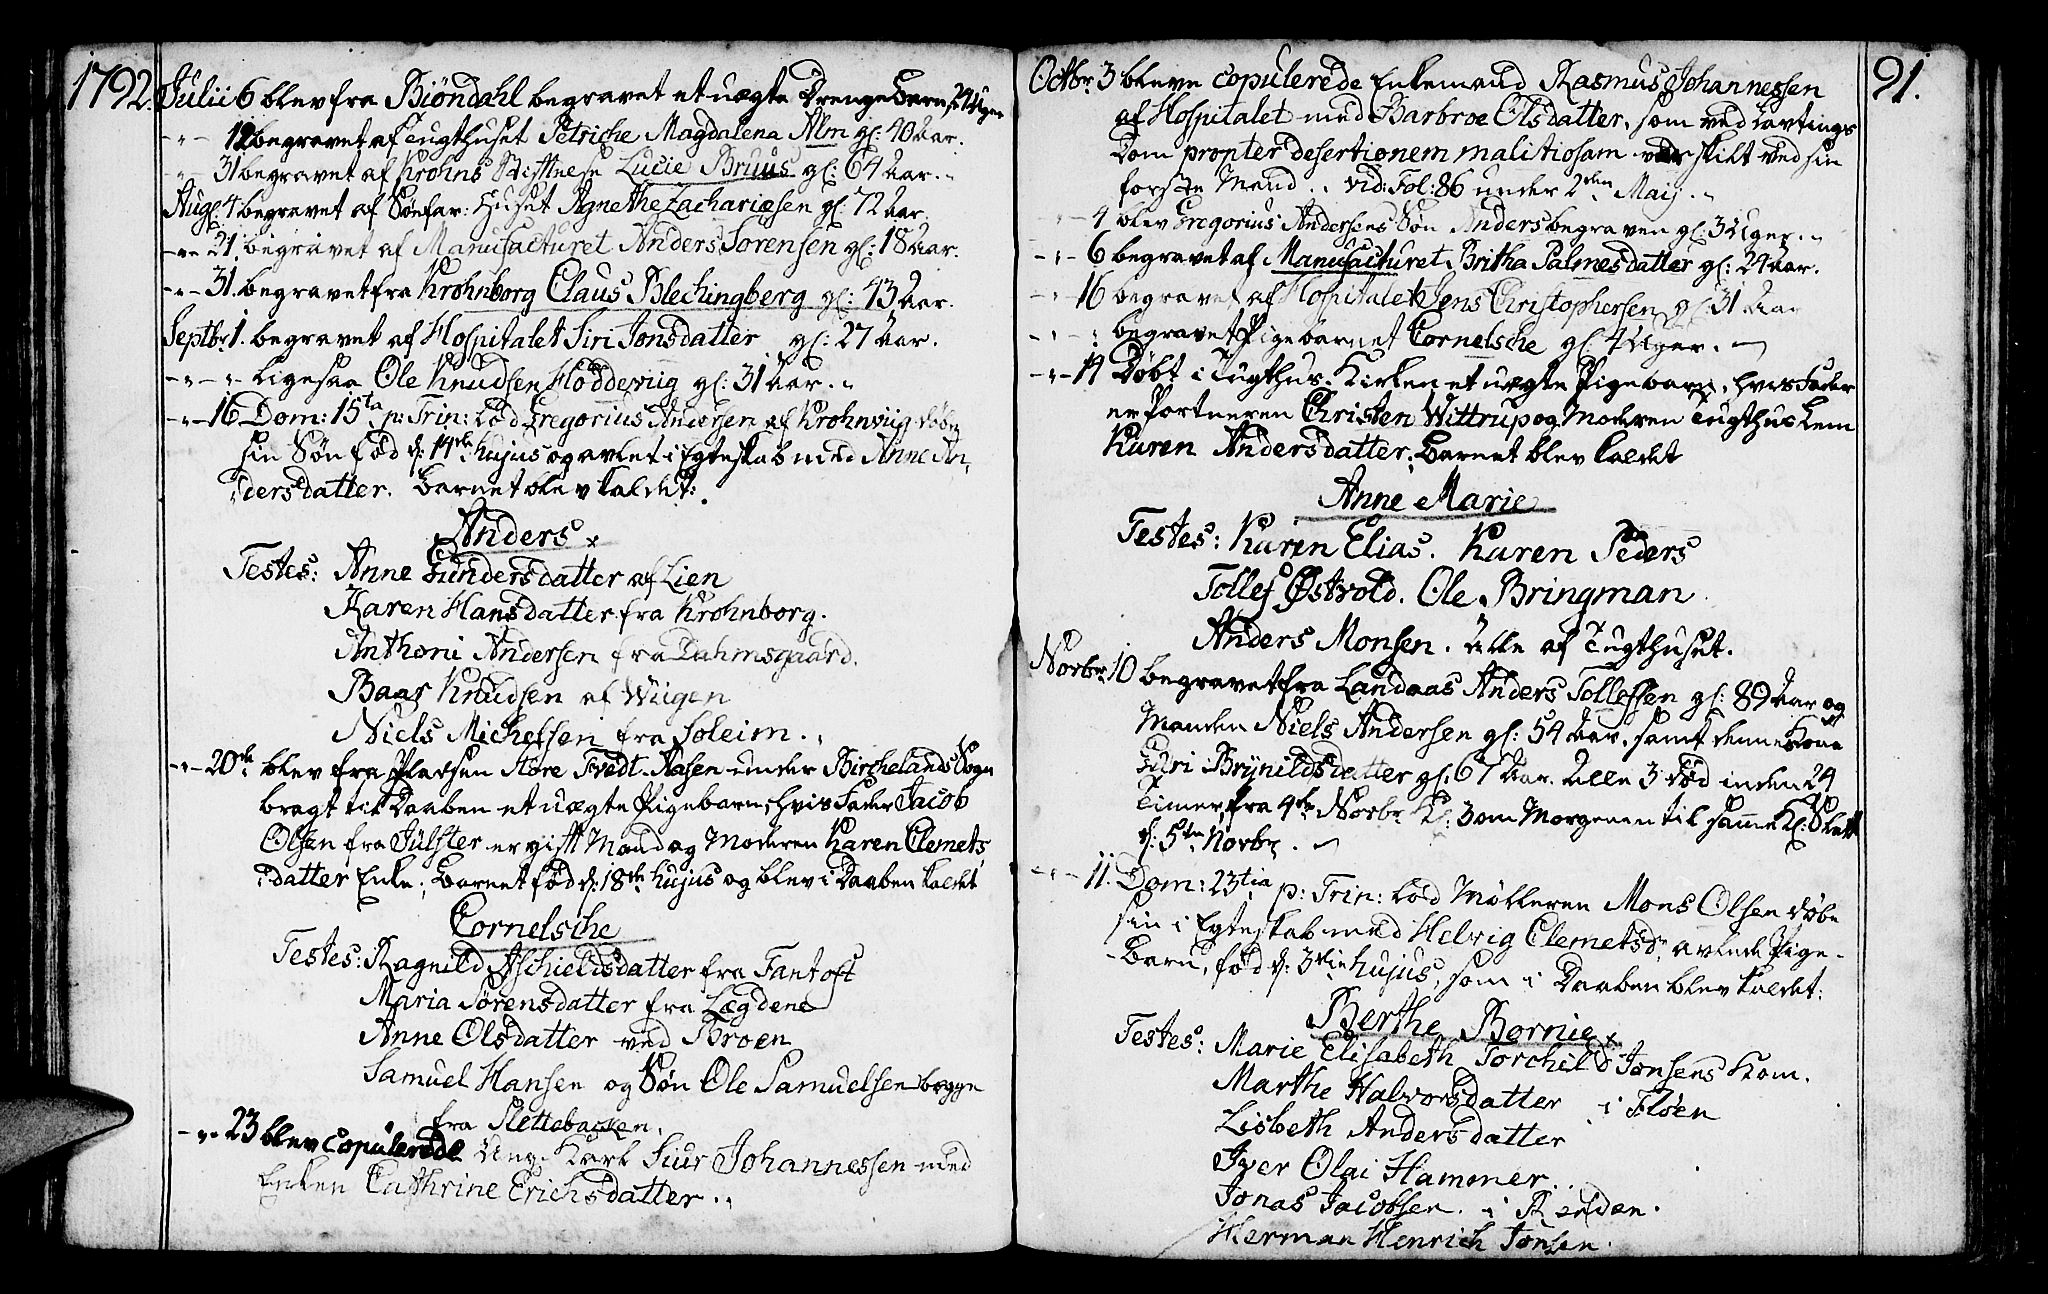 1792.
Julii 6 blev fra Biöndahl begravet et uægte Drenge Barn, 24 Uger
-"- 12 begravet af Tugthuset Petriche Magdalena Alm gl: 40 Aar.
-"- 31 begravet af Krohns Stiftelse Lucie Bruus gl: 64 Aar.
Aug: 4 begravet af Søefar: Huset Agnethe Zachariæsen gl: 72 Aar.
-"- 21. begravet af Manufacturet Anders Sørensen gl: 18 Aar.
-"- 31. begravet fra Krohnborg Claus Blechingberg gl: 43 Aar.
Septbr 1. begravet af Hospitalet Siri Jonsdatter gl: 27 Aar.
-"-"- ligesaa Ole Knudsen Floddeviig gl: 31 Aar.
-"- 16 Dom: 15ta p: Trin: lod Gregorius Andersen af Krohnviig døbe
sin Søn fød d: 14de hujus og avlet i Egteskab med Anne An,
dersdatter. Barnet blev kaldet:
Anders
Testes: Anne Gundersdatter af Lien
Karen Hansdatter fra Krohnborg.
Anthoni Andersen fra Dahmsgaard.
Baar Knudsen af Wiigen
Niels Michelsen fra Soleim.
-"- 20de blev fra Pladsen Store Tvedt-Aasen under Birchelands Sogn
bragt til Daaben et uægte Pigebarn, hvis Fader Jacob
Olsen fra Jülster er gift Mand og Moderen Karen Clemets
datter Enke; Barnet fød d: 18de hujus og blev i Daaben kaldet
Cornelsche
Testes: Ragnild Aschieldsdatter fra Fantoft
Maria Sørensdatter fra Lægdene
Anne Olsdatter ved Broen
Samuel Hansen og Søn Ole Samuelsen begge
fra Slettebakken.
-"- 23 blev copulerede Ung-Karl Siur Johannessen med
Enken Cathrine Erichsdatter.
91.
Octbr 3 bleve copulerede Enkemand Rasmus Johannessen
af Hospitalet med Barbroe Olsdatter, som ved Lavtings
Dom propter desertionem malitiosam var skilt ved sin
første Mand. vid: Fol: 86 under 2den Maij.
-"- 4 blev Gregorius Andersens Søn Anders begraven gl: 3 Uger.
-"- 6 begravet af Manufacturet Britha Palmesdatter gl: 24 Aar.
-"- 16 begravet af Hospitalet Jens Christophersen gl: 31 Aar
-"- : begravet Pigebarnet Cornelsche gl: 4 Uger.
-"- 14 Døbt i Tugthus-Kirken et uægte Pigebarn, hvis Fader
er Portneren Christen Wittrup og Moderen Tugthus Lem
Karen Andersdatter; Barnet blev kaldet
Anne Marie
Testes: Karen Elias. Karen Peders
Tollef Østvold. Ole Bringman
Anders Monsen. Alle af Tugthuset.
Novbr 10 begravet fra Landaas Anders Tollefsen gl: 89 Aar og
Manden Niels Andersen gl: 54 Aar, samt dennes Kone
Guri Brynildsdatter gl: 67 Aar. Alle 3 død inden 24
Timer, fra 4de Novbr Kl: 3 om Morgenen til samme Kl: Slett
d: 5te Novbr.
-"- 11. Dom: 23tia p: Trin: lod Mølleren Mons Olsen døbe
sin i Egteskab med Helvig Clemetsdr avlede Pige-
Barn, fød d: 3die hujus, som i Daaben blev kaldet:
Berthe Bornie
Testes: Marie Elisabeth Torchild Jonsens Kom.
Marthe Halvorsdatter i Fløen
Lisbeth Andersdatter
Iver Olai Hammer.
Jonas Jacobsen. i
Herman Henrich Jonsen.